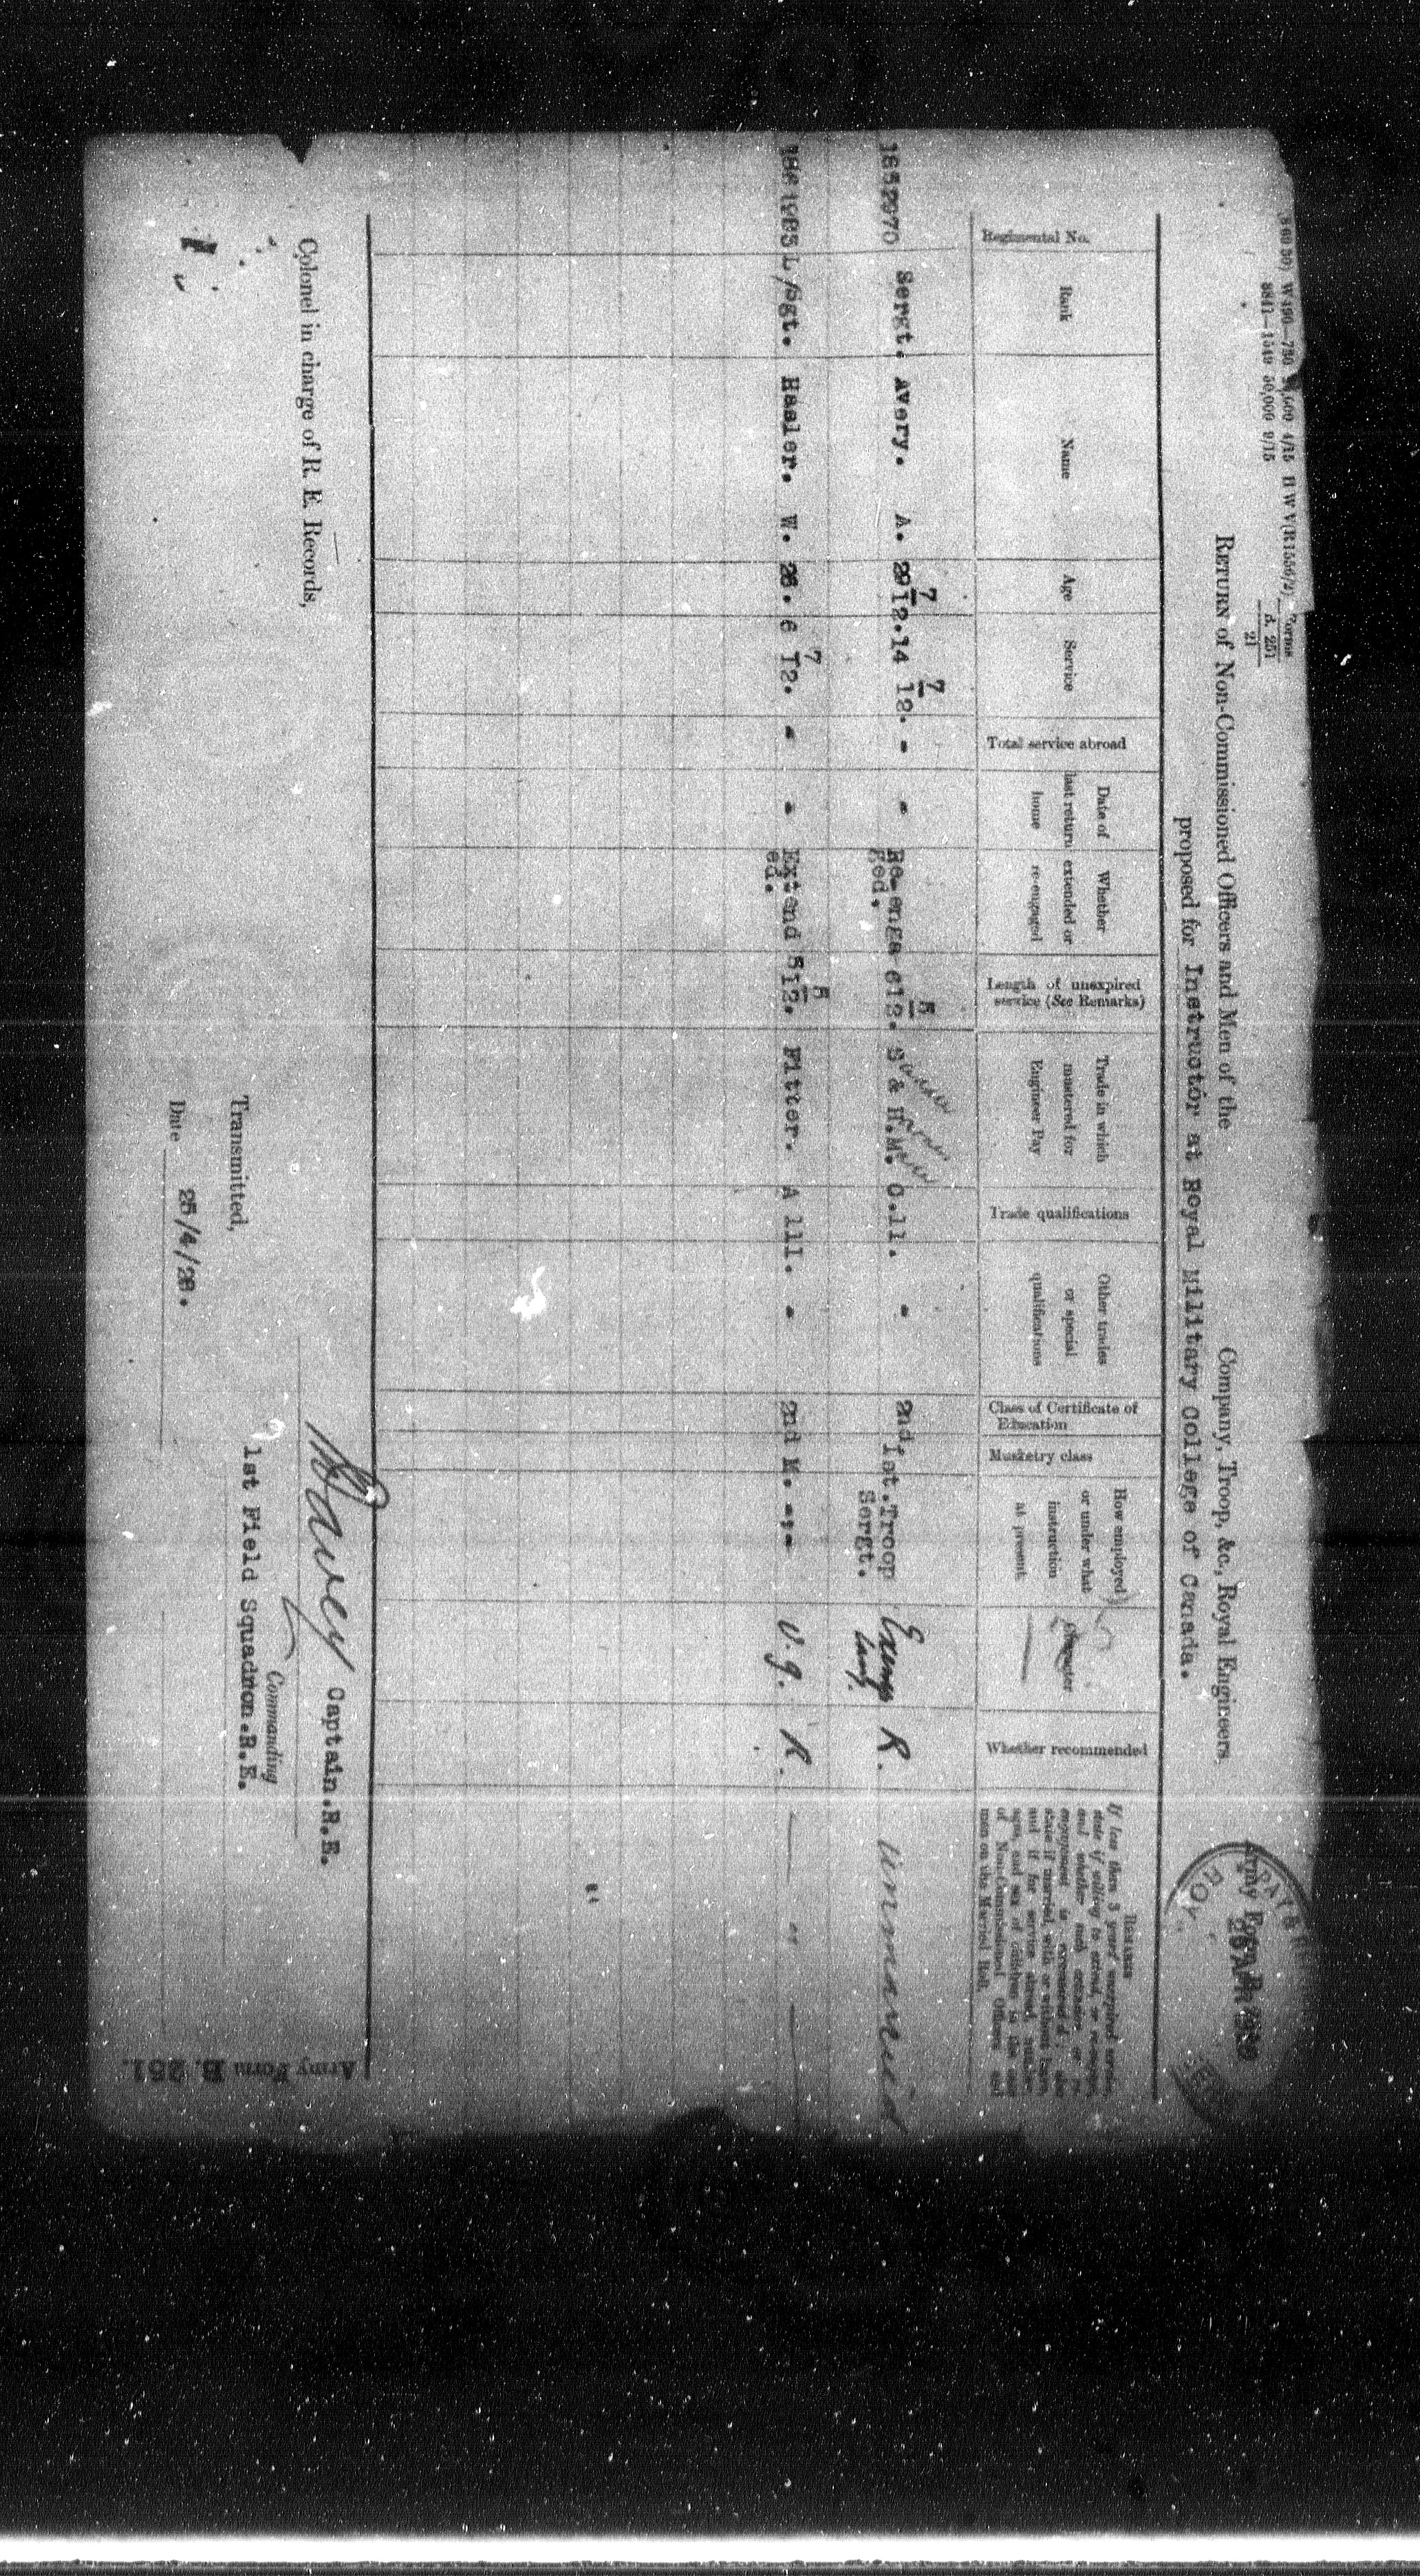 50,000 9/15
Forms
B. 251
21
Army Form B.
RETURN of Non-Commissioned Officers and Men of the Company, Troop, &c., Royal Engineers,
proposed for Instructor at Royal Military College of Canada.
Regimental No.
Rank
Name
Age
Service
Total service abroad
Date of last return home
Whether extended or re-engaged
Length of unexpired service (See Remarks)
Trade in which mustered for Engineer Pay
Trade qualifications
Other trades or special qualifications
Class of Certificate of Education
Musketry class
How employed or under what instruction at present
Character
Whether recommended
REMARKS
If less than 3 years' unexpired service,
state if willing to extend, or re-engage,
and whether such extension or re-
engagement is recommended; also
state if married, with or without leave,
and if for service abroad, number,
ages, and sex of children in the case
of Non-Commissioned Officers and
men on the Married Roll.
1852970 Sergt. Avery. A. 29 7/12. 14 7/12. - - Re-enga ged. 6 5/12. S & H.M. C.11. - 2nd. 1st. Troop Sergt. R. Unmarried
L/Sgt. Hasler. W. 26. 6 7/12. - - Extend ed. 5 5/12. Fitter. A 111. - 2nd M. -;- V.g. R. — " —
Colonel in charge of R. E. Records,
Transmitted,
Date 25/4/28.
Captain.R.E.
Commanding
1st Field Squadron.R.E.
Army Form B. 251.